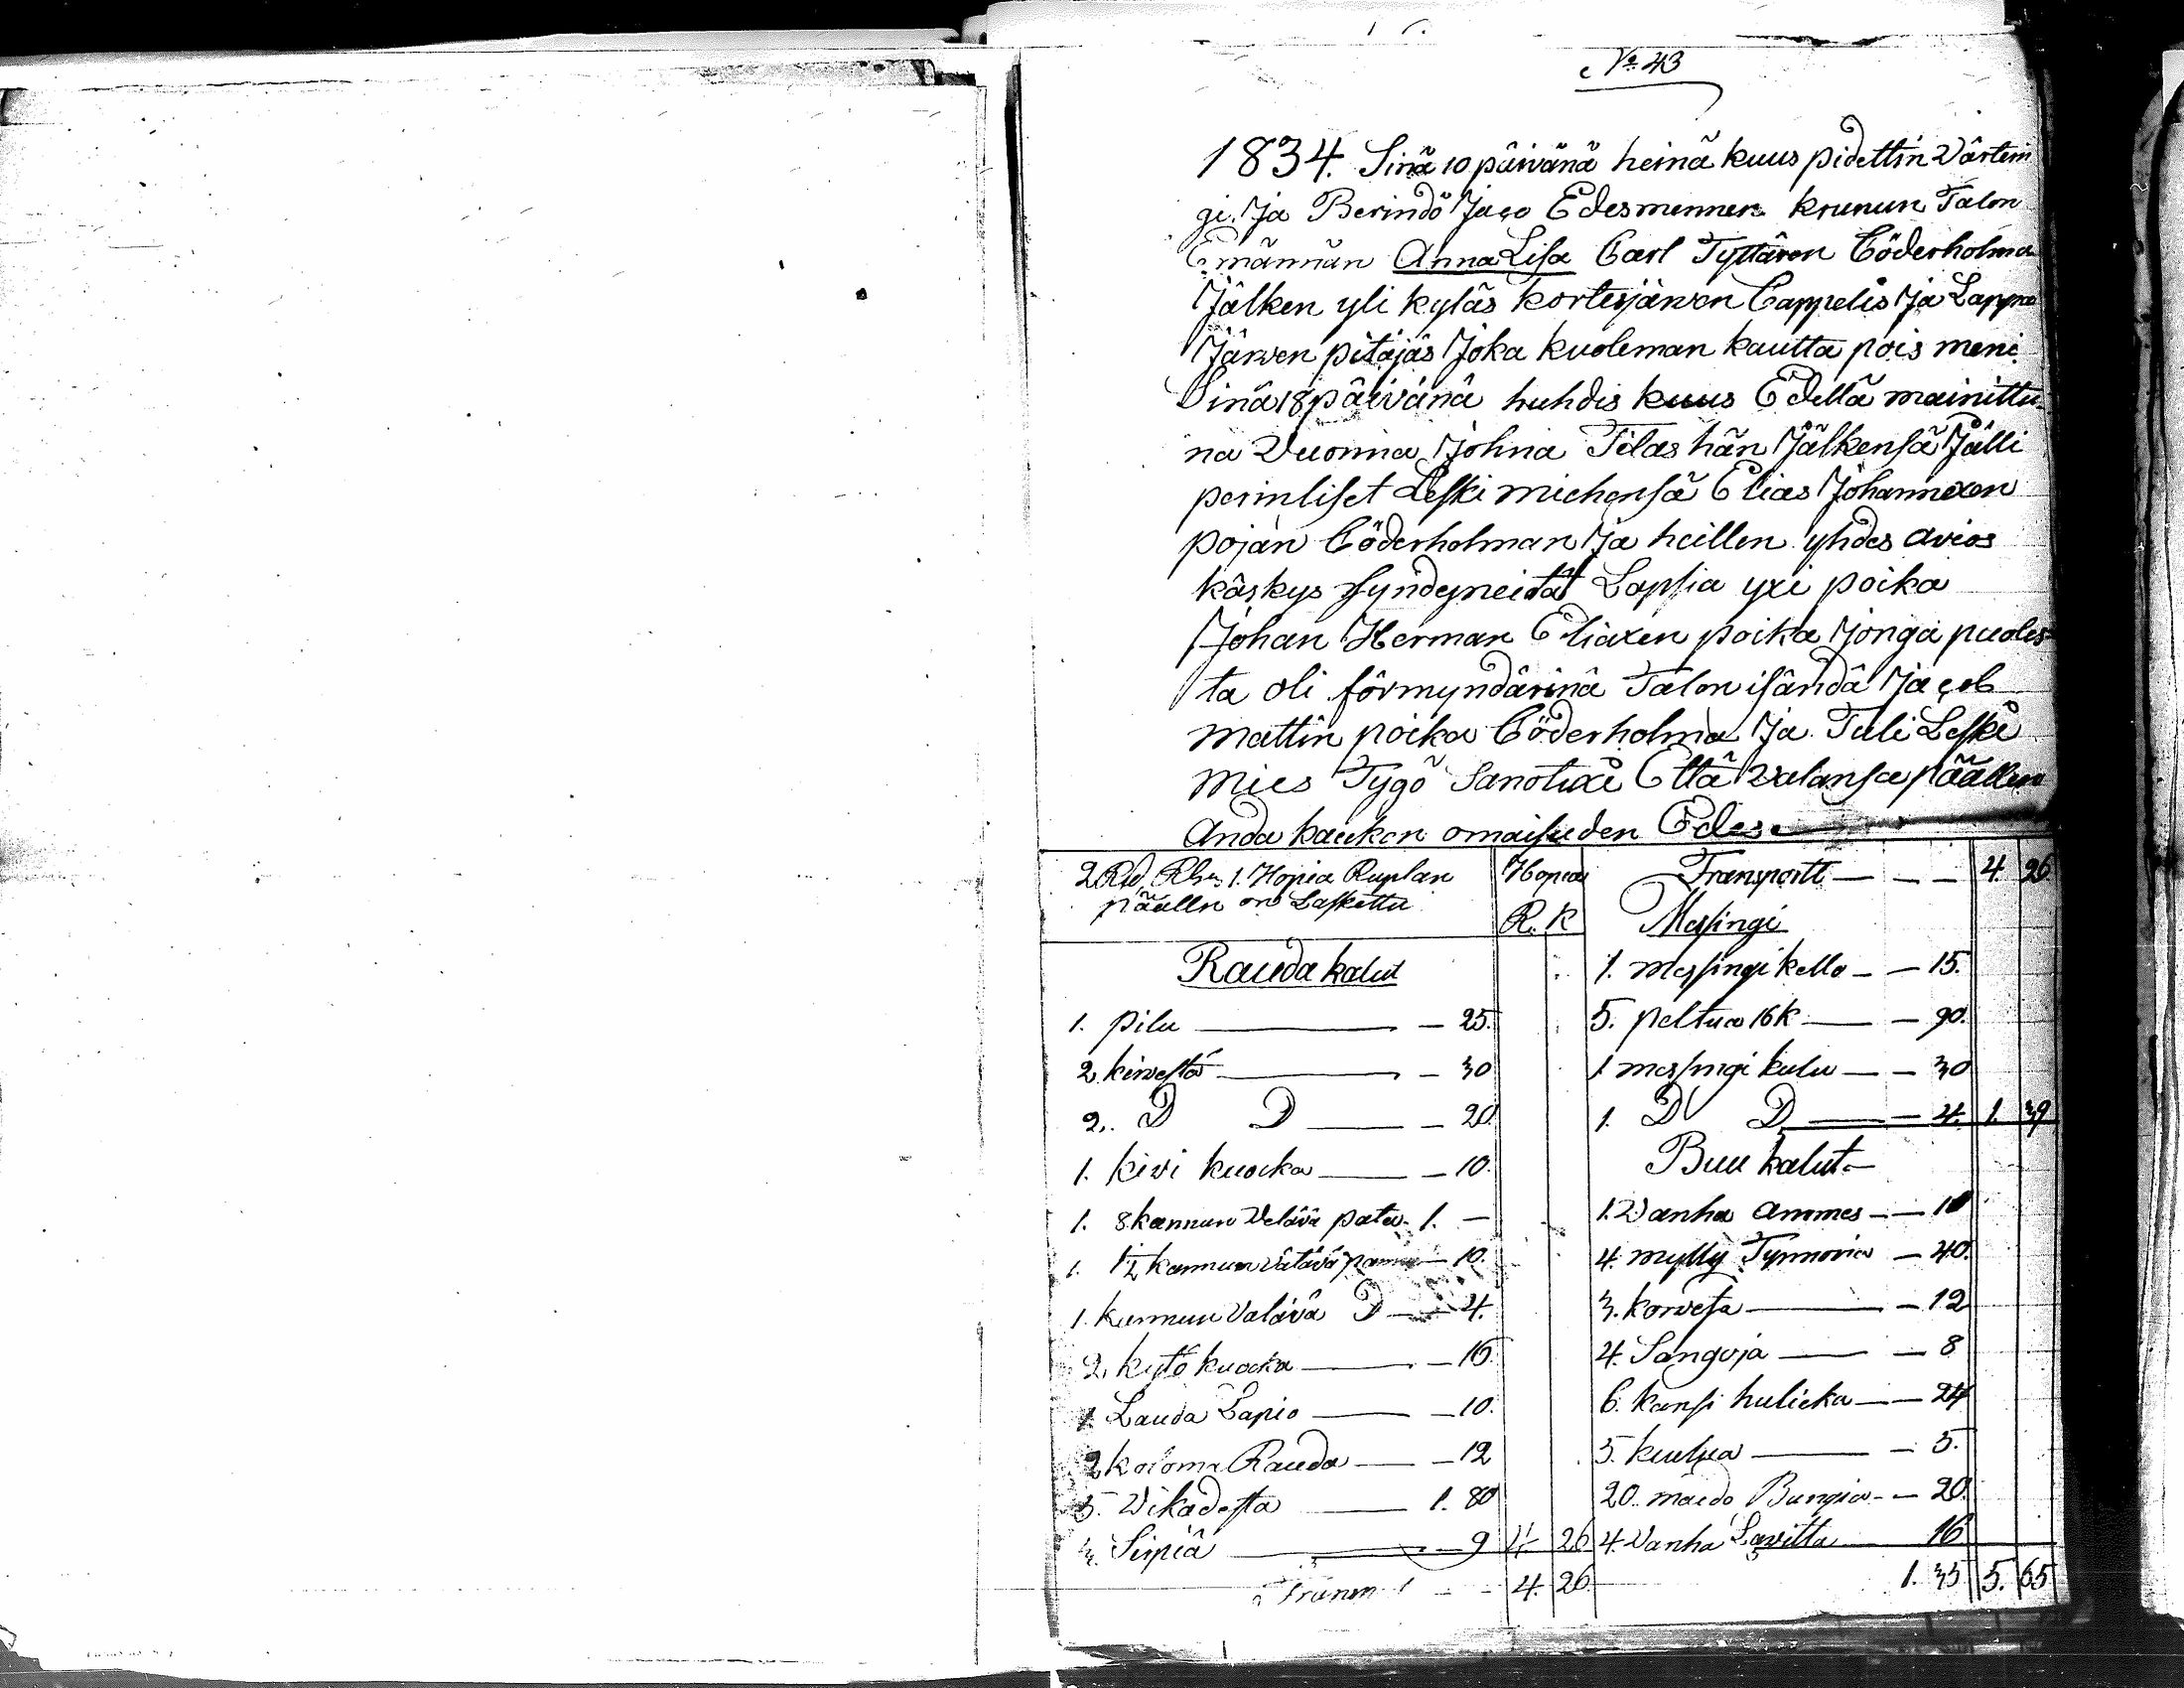 No 43
1834. Sinä 10 päivänä heinä kuus pidettin Värtein
gi. Ja Berindö Jaco Edesmennen krunun Talon
Emännän Anna Lisa Carl Tyttären Cöderholma
Jälken yli kyläs kortesjärven Cappelis Ja Lappa
Järven pitäjäs Joka kuoleman kautta pois meni
Sinä 18 päivänä huhdis kuus Edellä mainittu-
na Vuonna Johna Tilas hän Jälkensä Jälli
perinliset Leski miehensä Elias Johannexen
pojan Cöderholman Ja heillen yhdes avios
käskys syndyneitä Lapsia yxi poika
Johan Herman Eliaxen poika Jonga puoles=
ta oli förmyndärinä Talon isändä Jacob
mattin poika Cöderholma Ja Tuli Leski
mies Tygö Sanotuxi Että Valansa päällen
Anda kaiken omaisuden Edes
2 Rd, Rgs 1. Hopia Ruplan
päälle on Laskettu
Hopia
R. K
Rauda kalut
1. pilu — 25.
2. kirvestä — 30
2. D D — 20
1. kivi kuocka — 10.
1. 8 kannun Vetävä pata 1. —
1. 1/2 kannun Vätävä pannu — 10.
1. kannun Valävä D — 4.
2. kytö kuocka — 16
1. Lauda Lapio — 10.
2 koloma Rauda — 12
5. Vikadesta — 1. 80
3. Sirpiä — 9 4 26
4. 26
Transportt — 4. 26.
Mesingi
1. messingi kello — 15.
5. peltua 16 k — 90.
1 messingi kulu — 30
1. D D — 4. 1. 39
Buu kalut
1. Vanha ammes — 10
4. mylly Tynnoria — 40.
3. korvesa — 12
4. Sangoja — 8
6. kansi hulicka — 24
5. kiulua — 5.
20. maido Bungia — 20.
4. Vanha Lavitta 16
1. 35 5. 65